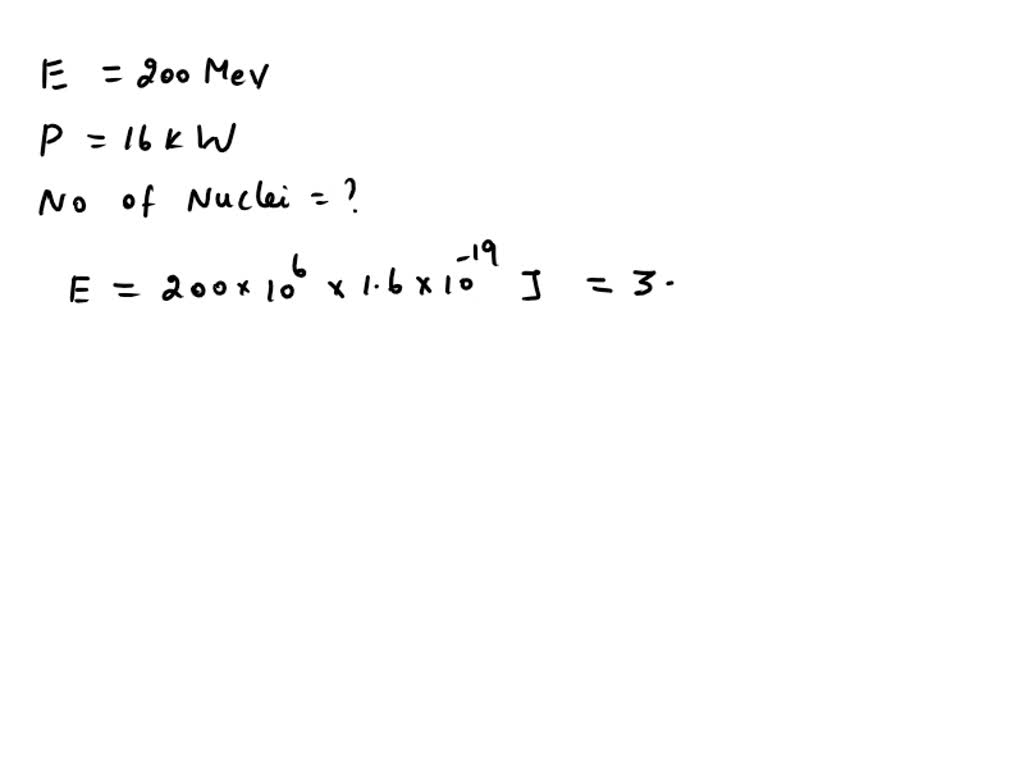 E = 200 Mev
P = 16 k W
No of Nuclei = ?
E = 200 × 10^6 × 1.6 × 10^-19 J = 3.